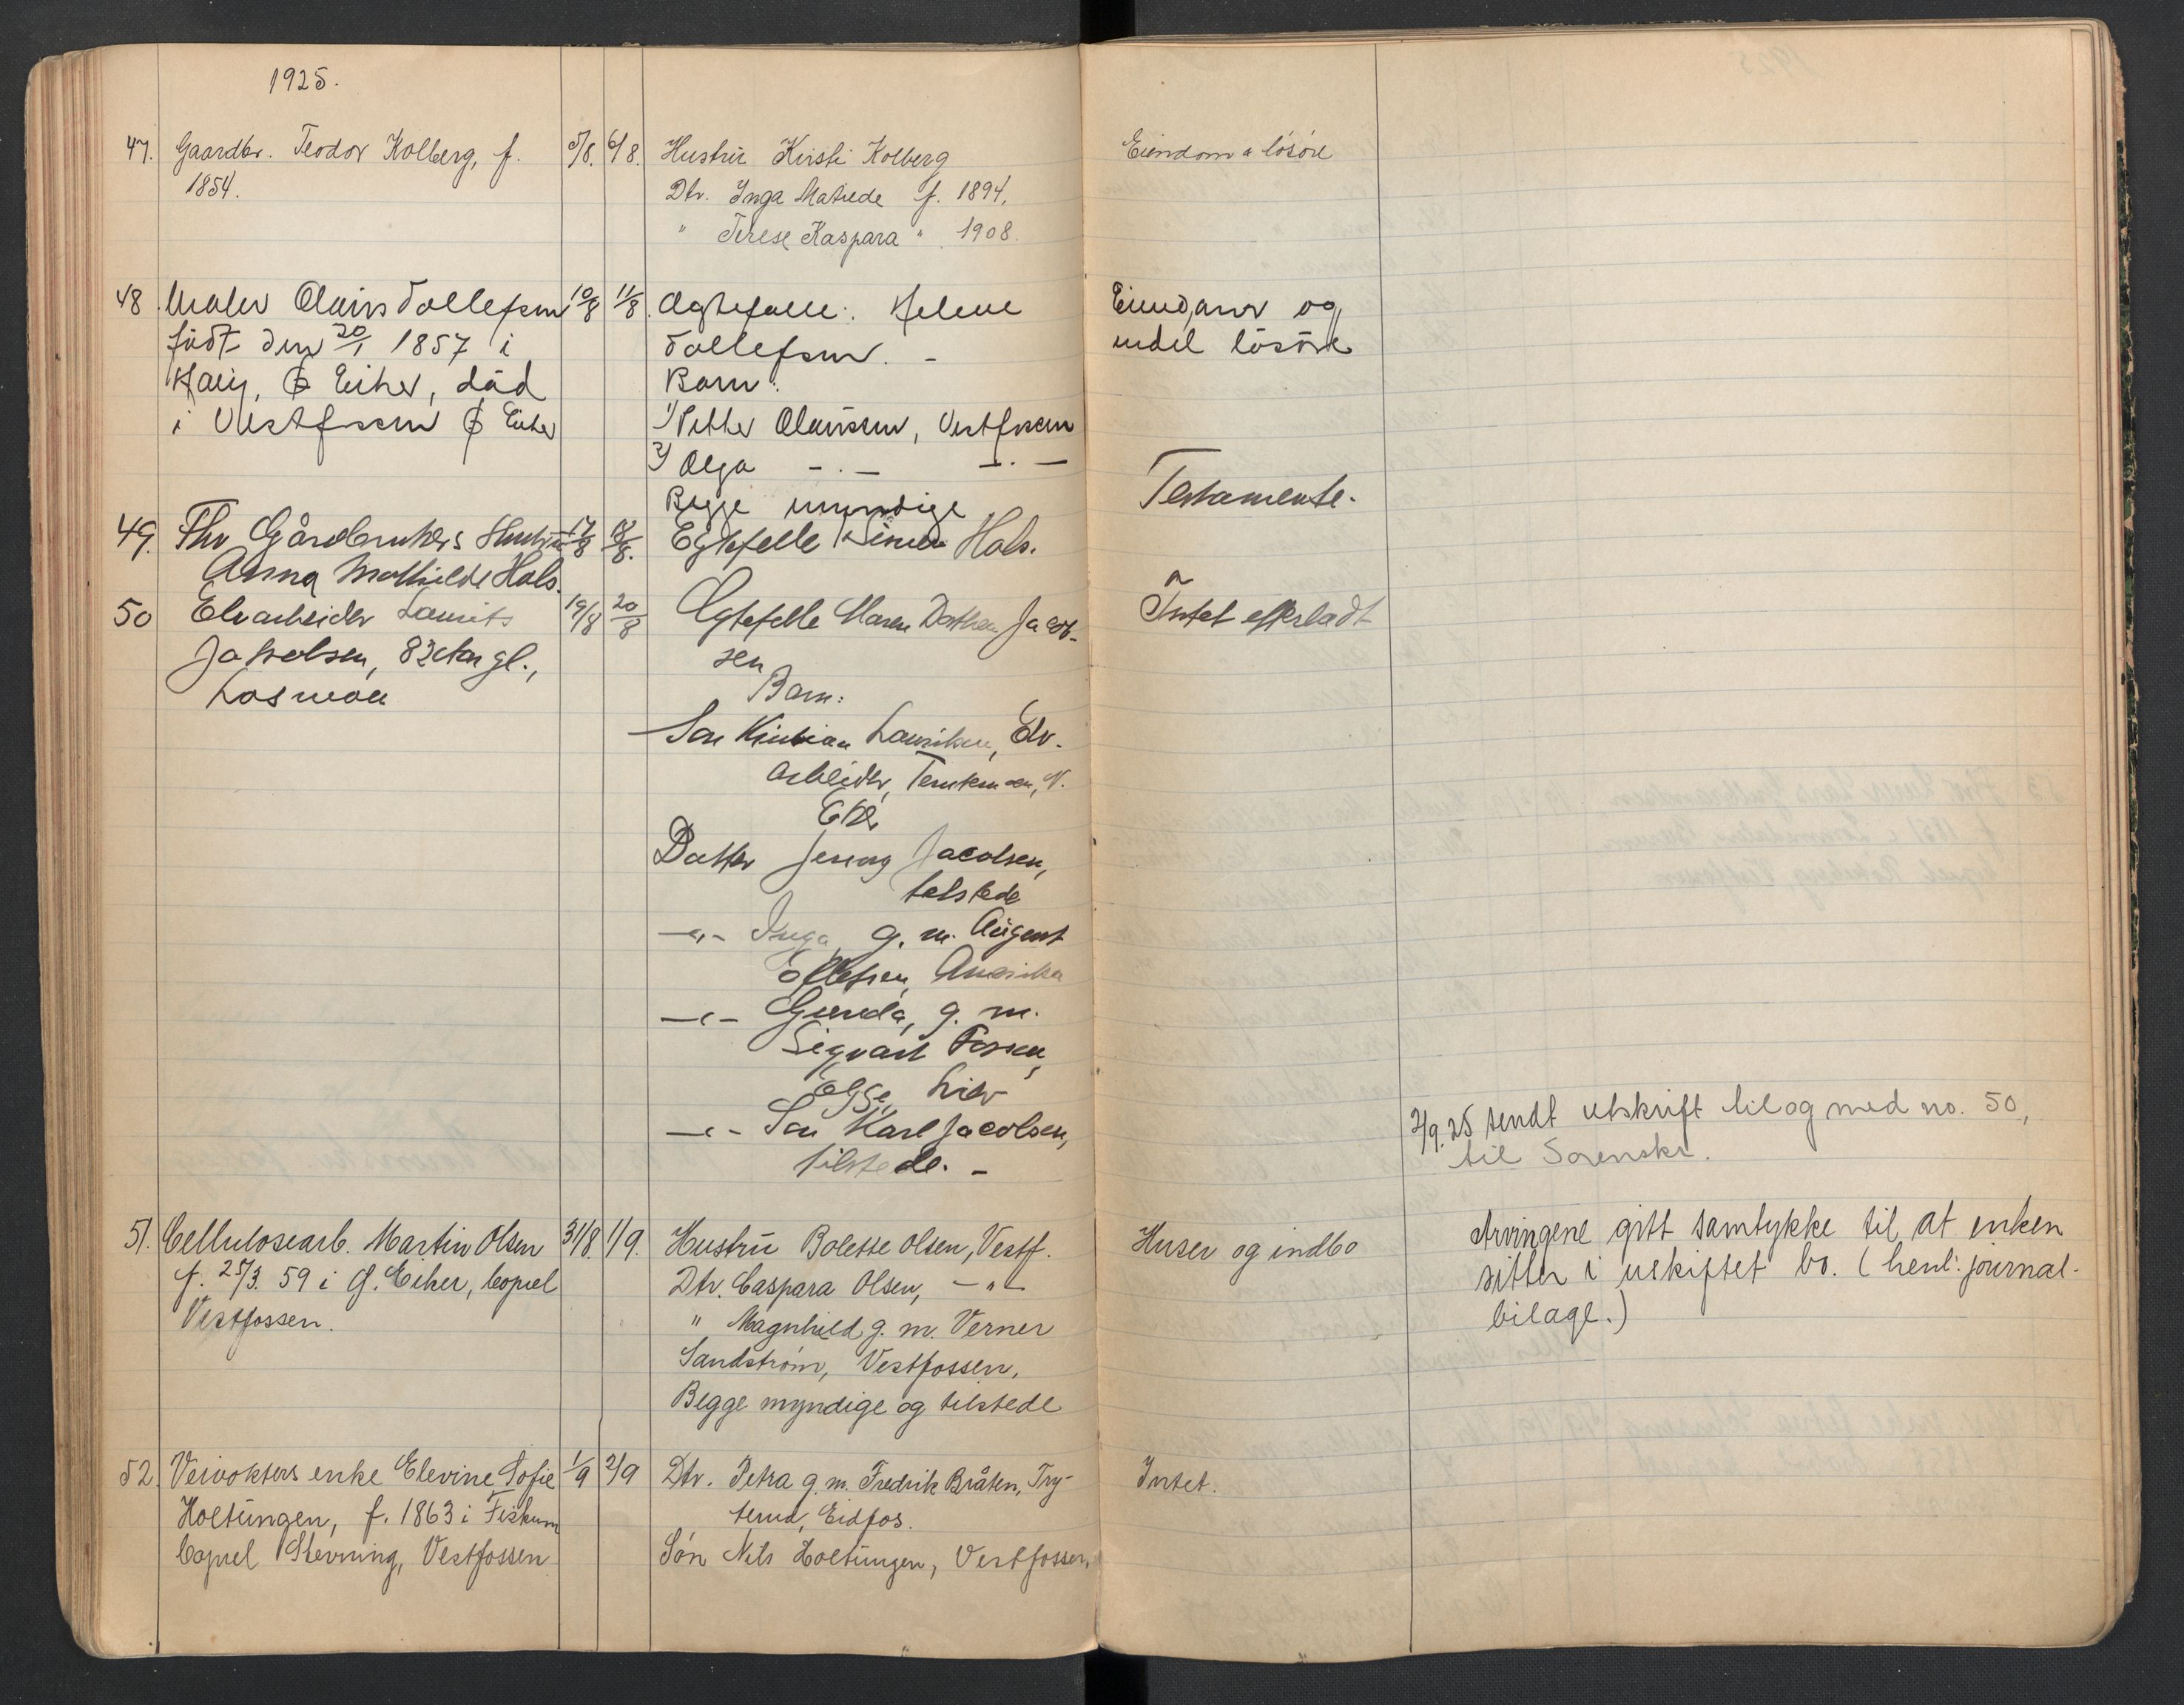 1925.
47. Gaardbr. Teodor Kolberg, f. 5/8. 6/8. Hustru Kirsti Kolberg Eiendom & lösöre
1854. Dtr. Inga Matilde f. 1894.
" Terese Kaspara " 1908.
48. Maler Olaus Tollefsen 10/8 11/8. Ægtefælle: Helene Eiendom og
födt den 20/1 1857 i Tollefsen. - endel lösöre
Ø Eiker, död Barn:
i Vestfossen Ø Eiker 1) Olaussen, Vestfossen
2) Olga -.- -.-
Begge umyndige
Testamente.
49. Fhv Gårdbrukers Hustru 17/8 18/8. Egtefelle Simen Hals.
Anna Mathilde Hals.
50 Elvarbeider Laurits 19/8 20/8 Ægtefelle Maren Dorthea Jacob- Intet efterladt
Jakobsen, 82 år gl., sen
Losmoen Barn:
Søn Kristian Lauritsen, Elv-
arbeider, V.
Eker
Datter Jenny Jacobsen,
tilstede
-"- Inga, g. m. August
Ellefsen, Amerika
-"- Gunda, g. m.
Sigvart Fossen,
Lier
-"- Søn Karl Jacobsen,
tilstede. -
2/9.25 sendt utskrift til og med no. 50,
til Sorenskr.
51. Cellulosearb. Martin Olsen 31/8. 1/9. Hustru Bolette Olsen, Vestf. Huser og indbo Arvingene gitt samtykke til at enken
f. 25/3. 59 i Ø. Eiker, bopæl Dtr. Caspara Olsen, -"- sitter i uskiftet bo. (henl: journal-
Vestfossen. " Magnhild g. m. Verner bilage.)
Sandström, Vestfossen.
Begge myndige og tilstede
52. Veivokters enke Elevine Sofie 1/9 2/9 Dtr. Petra g. m. Fredrik Bråten, Try- Intet.
Holtungen, f. 1863 i Fiskum terud, Eidfos.
bopæl Stevning, Vestfossen Søn Nils Holtungen, Vestfossen.